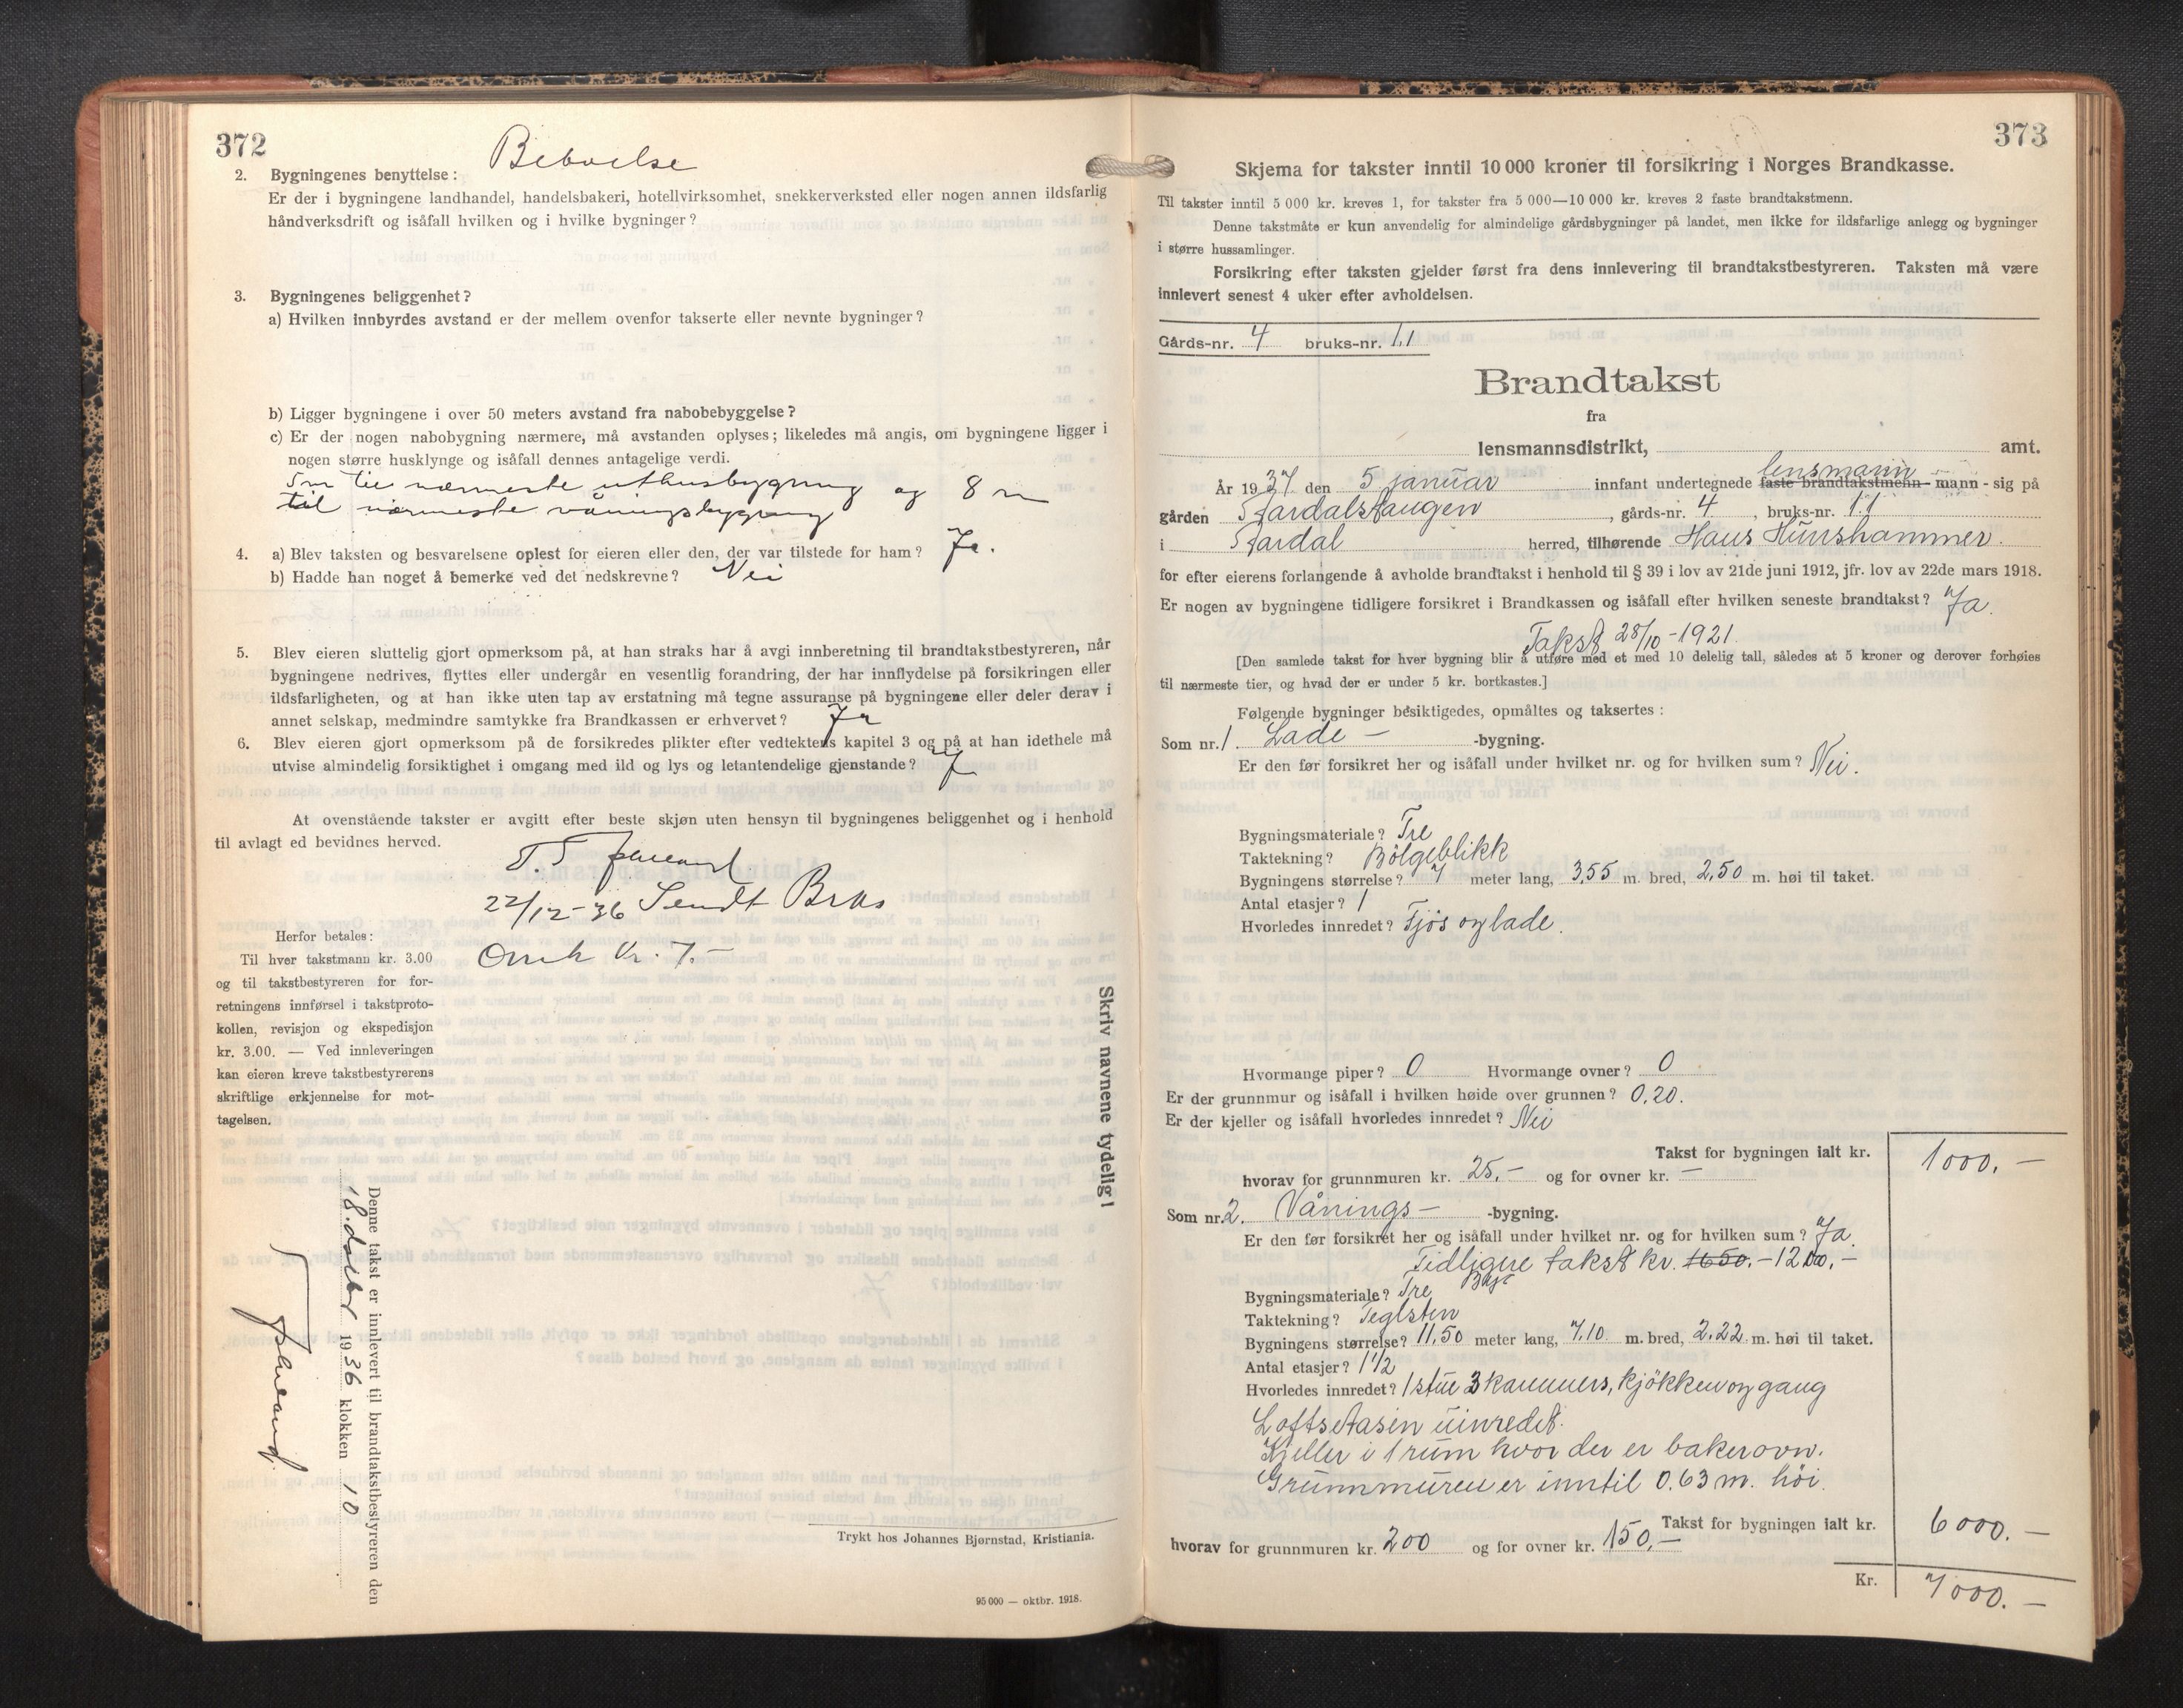 372
Beboelse
2. Bygningenes benyttelse:
Er der i bygningene landhandel, handelsbakeri, hotellvirksomhet, snekkerverksted eller nogen annen ildsfarlig
håndverksdrift og isåfall hvilken og i hvilke bygninger?
3. Bygningenes beliggenhet?
a) Hvilken innbyrdes avstand er der mellem ovenfor takserte eller nevnte bygninger?
b) Ligger bygningene i over 50 meters avstand fra nabobebyggelse?
c) Er der nogen nabobygning nærmere, må avstanden oplyses; likeledes må angis, om bygningene ligger i
nogen større husklynge og isåfall dennes antagelige verdi.
5 m til nærmeste uthusbygning og 8 m
til nærmeste våningsbygning
4. a) Blev taksten og besvarelsene oplest for eieren eller den, der var tilstede for ham? Ja.
b) Hadde han noget å bemerke ved det nedskrevne? Nei
5. Blev eieren sluttelig gjort opmerksom på, at han straks har å avgi innberetning til brandtakstbestyreren, når
bygningene nedrives, flyttes eller undergår en vesentlig forandring, der har innflydelse på forsikringen eller
ildsfarligheten, og at han ikke uten tap av erstatning må tegne assuranse på bygningene eller deler derav i
annet selskap, medmindre samtykke fra Brandkassen er erhvervet? Ja
6. Blev eieren gjort opmerksom på de forsikredes plikter efter vedtektens kapitel 3 og på at han idethele må
utvise almindelig forsiktighet i omgang med ild og lys og letantendelige gjenstande? J
At ovenstående takster er avgitt efter beste skjøn uten hensyn til bygningenes beliggenhet og i henhold
til avlagt ed bevidnes herved.
22/12-36 Sendt
kr. 7.-
Herfor betales:
Til hver takstmann kr. 3.00
og til takstbestyreren for for-
retningens innførsel i takstproto-
kollen, revisjon og ekspedisjon
kr. 3.00. — Ved innleveringen
kan eieren kreve takstbestyrerens
skriftlige erkjennelse for mot-
tagelsen.
Skriv navnene tydelig!
Denne takst er innlevert til brandtakstbestyreren den
18. 1936 klokken 10
Trykt hos Johannes Bjørnstad, Kristiania.
95 000 — oktbr. 1918.
373
Skjema for takster inntil 10 000 kroner til forsikring i Norges Brandkasse.
Til takster inntil 5 000 kr. kreves 1, for takster fra 5 000—10 000 kr. kreves 2 faste brandtakstmenn.
Denne takstmåte er kun anvendelig for almindelige gårdsbygninger på landet, men ikke for ildsfarlige anlegg og bygninger
i større hussamlinger.
Forsikring efter taksten gjelder først fra dens innlevering til brandtakstbestyreren. Taksten må være
innlevert senest 4 uker efter avholdelsen.
Gårds-nr. 4 bruks-nr. 11
Brandtakst
fra
lensmannsdistrikt, amt.
lensmann
År 1937 den 5 januar innfant undertegnede faste brandtakstmenn - mann - sig på
gården Årdalstangen, gårds-nr. 4, bruks-nr. 11
i Årdal herred, tilhørende Hans Hunshammer.
for efter eierens forlangende å avholde brandtakst i henhold til § 39 i lov av 21de juni 1912, jfr. lov av 22de mars 1918.
Er nogen av bygningene tidligere forsikret i Brandkassen og isåfall efter hvilken seneste brandtakst? Ja.
Takst 28/10-1921.
[Den samlede takst for hver bygning blir å utføre med et med 10 delelig tall, således at 5 kroner og derover forhøies
til nærmeste tier, og hvad der er under 5 kr. bortkastes.]
Følgende bygninger besiktigedes, opmåltes og taksertes:
Som nr. 1. Lade - -bygning.
Er den før forsikret her og isåfall under hvilket nr. og for hvilken sum? Nei.
Bygningsmateriale? Tre
Taktekning? Bölgeblikk
Bygningens størrelse? 7 meter lang, 3,55 m. bred, 2,50 m. høi til taket.
Antal etasjer? 1
Hvorledes innredet? Fjös og lade.
Hvormange piper? 0 Hvormange ovner? 0
Er der grunnmur og isåfall i hvilken høide over grunnen? 0,20.
Er der kjeller og isåfall hvorledes innredet? Nei
Takst for bygningen ialt kr. 1000.—
hvorav for grunnmuren kr. 25.- og for ovner kr. —
Som nr. 2. Vånings- -bygning.
Er den før forsikret her og isåfall under hvilket nr. og for hvilken sum? Ja.
Tidligere takst kr. 1650.- 1200.-
Bygningsmateriale? Tre
Taktekning? Teglsten
Bygningens størrelse? 11,50 meter lang, 7,10 m. bred, 2.22 m. høi til taket.
Antal etasjer? 1 1/2
Hvorledes innredet? 1 stue 3 kammers, kjökken og gang
Loftsetasjen uinredet.
Kjeller i 1 rum hvor der er bakerovn.
Grunnmuren er inntil 0.63 m. höi.
Takst for bygningen ialt kr. 6000.—
hvorav for grunnmuren kr. 200 og for ovner kr. 150.—
Kr. 7000.—